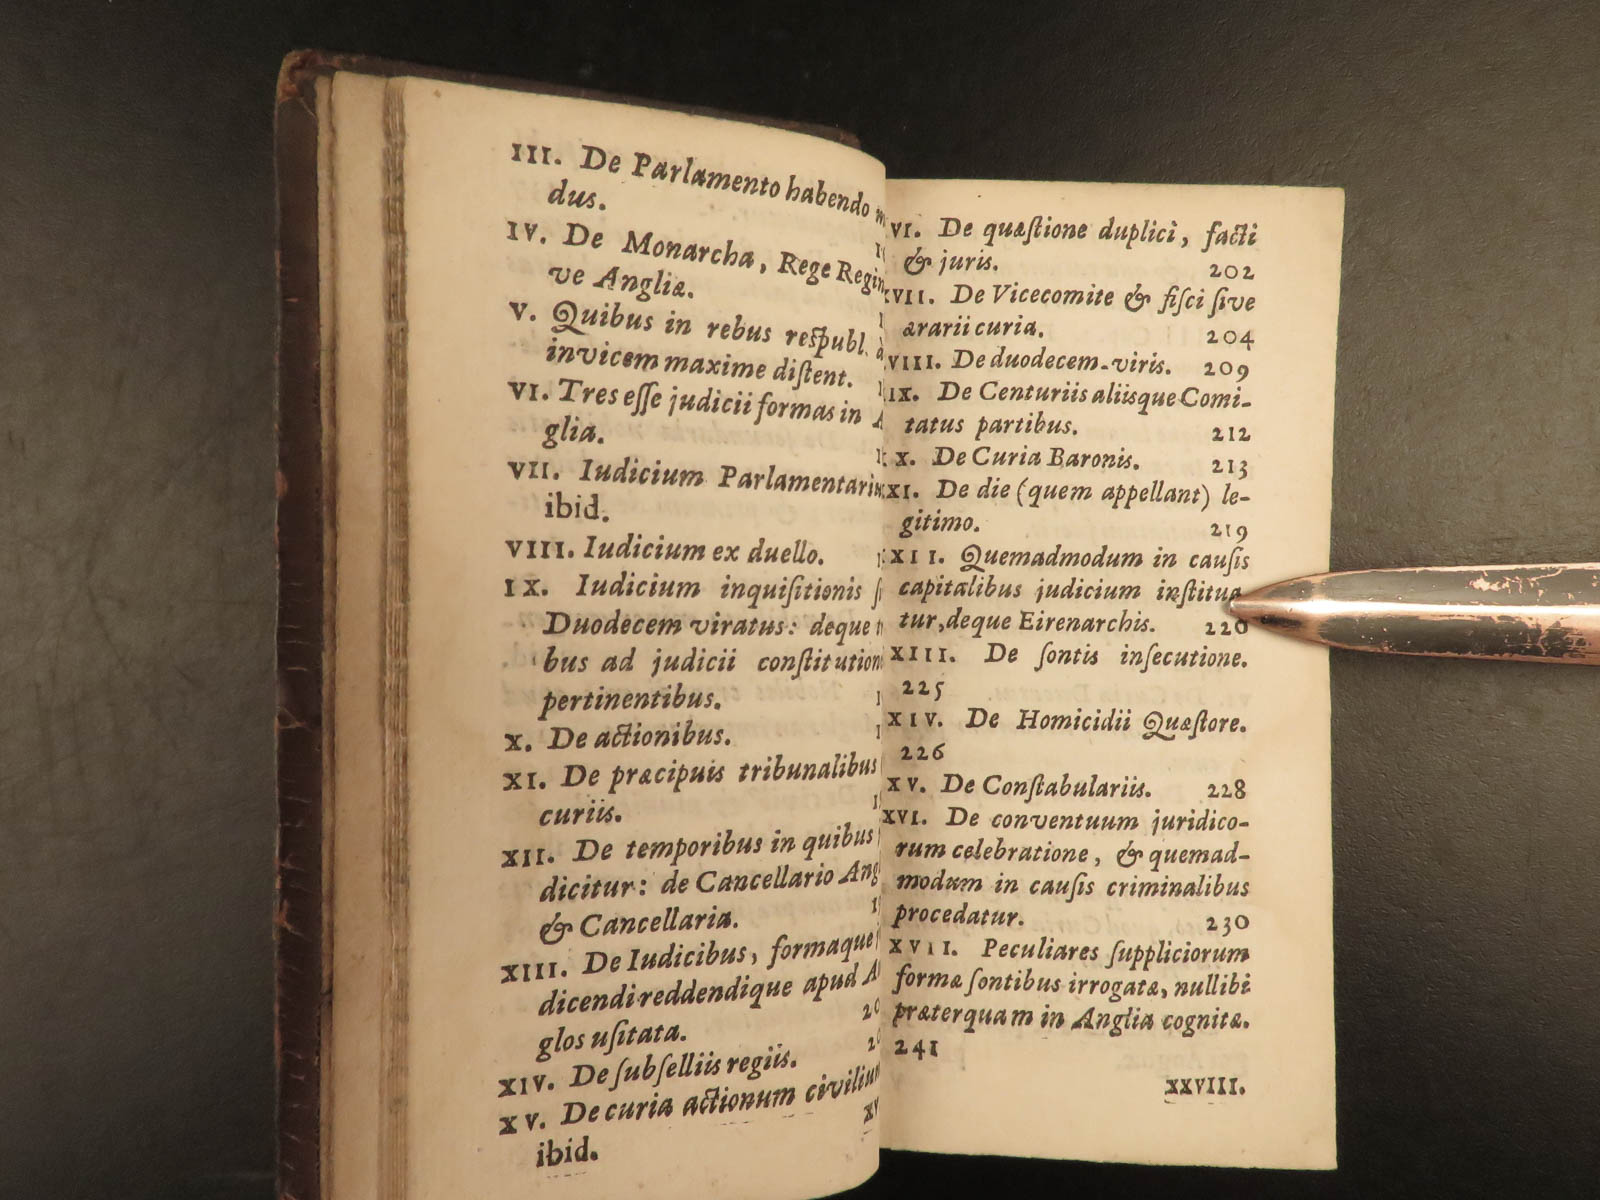 III. De Parlamento habendo
dus.
IV. De Monarcha, Rege
ve Angliæ.
V. Quibus in rebus respubl.
invicem maxime diſtent.
VI. Tres eſſe judicii formas in
glia.
VII. Iudicium
ibid.
VIII. Iudicium ex duello.
IX. Iudicium inquiſitionis
Duodecem viratus: deque
bus ad judicii
pertinentibus.
X. De actionibus.
XI. De præcipuis tribunalibus
curiis.
XII. De temporibus in quibus
dicitur: de Cancellario
& Cancellaria.
XIII. De Iudicibus, formaque
dicendi reddendique apud
glos uſitata.
XIV. De ſubſelliis regiis.
XV. De curia actionum
ibid.
VI. De quæſtione duplici, facti
& juris. 202
VII. De Vicecomite & fiſci ſive
ærarii curia. 204
VIII. De duodecem-viris. 209
IX. De Centuriis aliisque Comi-
tatus partibus. 212
X. De Curia Baronis. 213
XI. De die (quem appellant) le-
gitimo. 219
XII. Quemadmodum in cauſis
capitalibus judicium inſtitua
tur, deque Eirenarchis. 220
XIII. De ſontis inſecutione.
225
XIV. De Homicidii Quæſtore.
226
XV. De Conſtabulariis. 228
XVI. De conventuum juridico-
rum celebratione, & quemad-
modum in cauſis criminalibus
procedatur. 230
XVII. Peculiares ſuppliciorum
formæ ſontibus irrogatæ, nullibi
præterquam in Anglia cognitæ.
241
XXVIII.